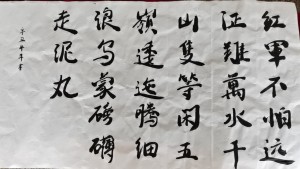 紅軍不怕远
征難萬水千
山隻等闲五
嶺逶迤騰细
浪乌蒙磅礴
走泥丸
辛丑年